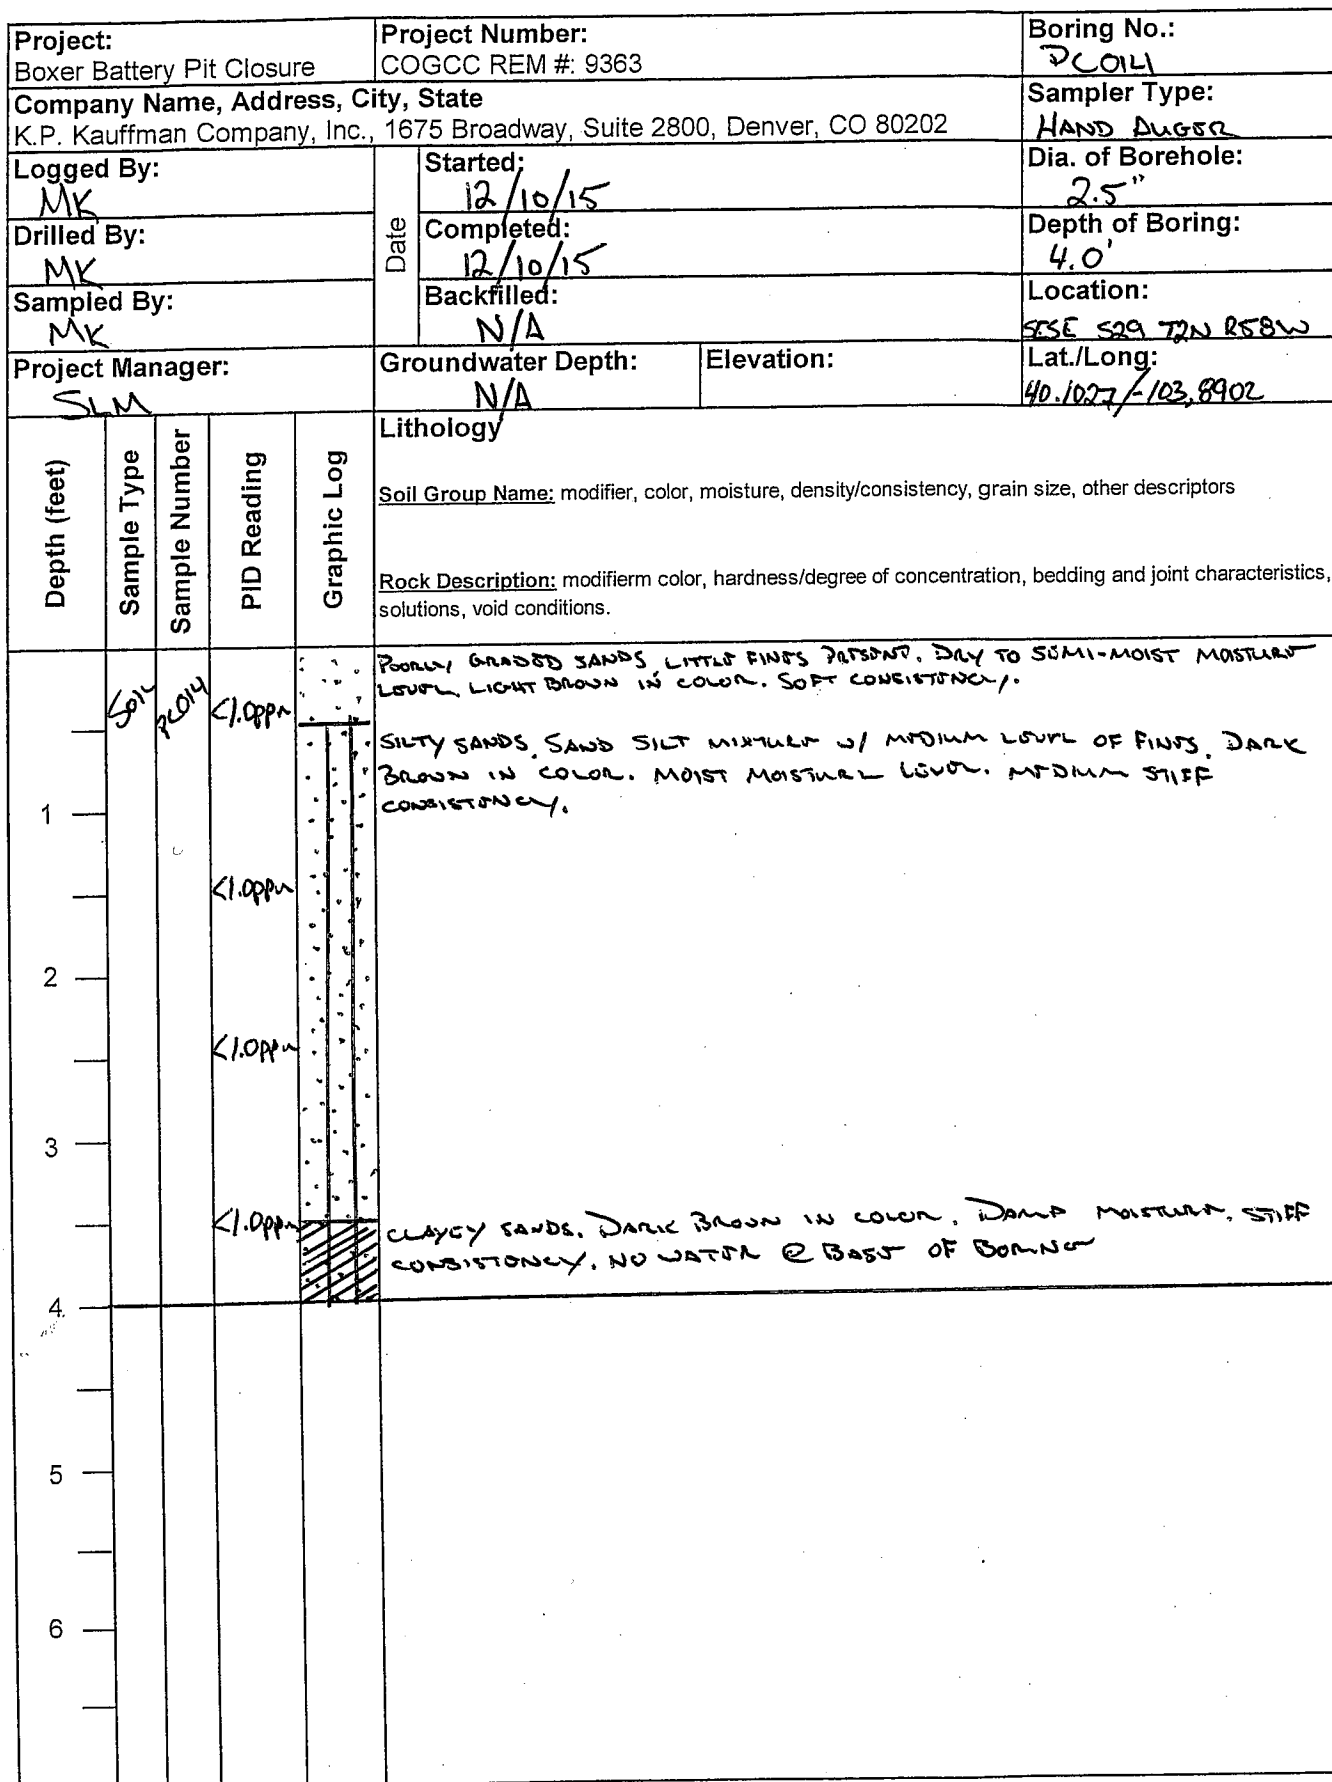 Project:
Boxer Battery Pit Closure
Project Number:
COGCC REM #: 9363
Boring No.:
PC014
Company Name, Address, City, State
K.P. Kauffman Company, Inc., 1675 Broadway, Suite 2800, Denver, CO 80202
Sampler Type:
HAND AUGER
Logged By:
MK
Date
Started:
12/10/15
Dia. of Borehole:
2.5"
Drilled By:
MK
Completed:
12/10/15
Depth of Boring:
4.0'
Sampled By:
MK
Backfilled:
N/A
Location:
SESE S29 T2N R58W
Project Manager:
SLM
Groundwater Depth:
N/A
Elevation:
Lat./Long:
40.1027/-103.8902
Depth (feet)
Sample Type
Sample Number
PID Reading
Graphic Log
Lithology
Soil Group Name: modifier, color, moisture, density/consistency, grain size, other descriptors
Rock Description: modifierm color, hardness/degree of concentration, bedding and joint characteristics,
solutions, void conditions.
POORLY GRADED SANDS, LITTLE FINES PRESENT. DRY TO SEMI-MOIST MOISTURE
LEVEL, LIGHT BROWN IN COLOR. SOFT CONSISTENCY.
SOIL
PC014
<1.0ppm
SILTY SANDS, SAND SILT MIXTURE W/ MEDIUM LEVEL OF FINES, DARK
BROWN IN COLOR. MOIST MOISTURE LEVEL. MEDIUM STIFF
CONSISTENCY.
1
<1.0ppm
2
<1.0ppm
3
<1.0ppm
CLAYEY SANDS. DARK BROWN IN COLOR. DAMP MOISTURE, STIFF
CONSISTENCY. NO WATER @ BASE OF BORING
4
5
6